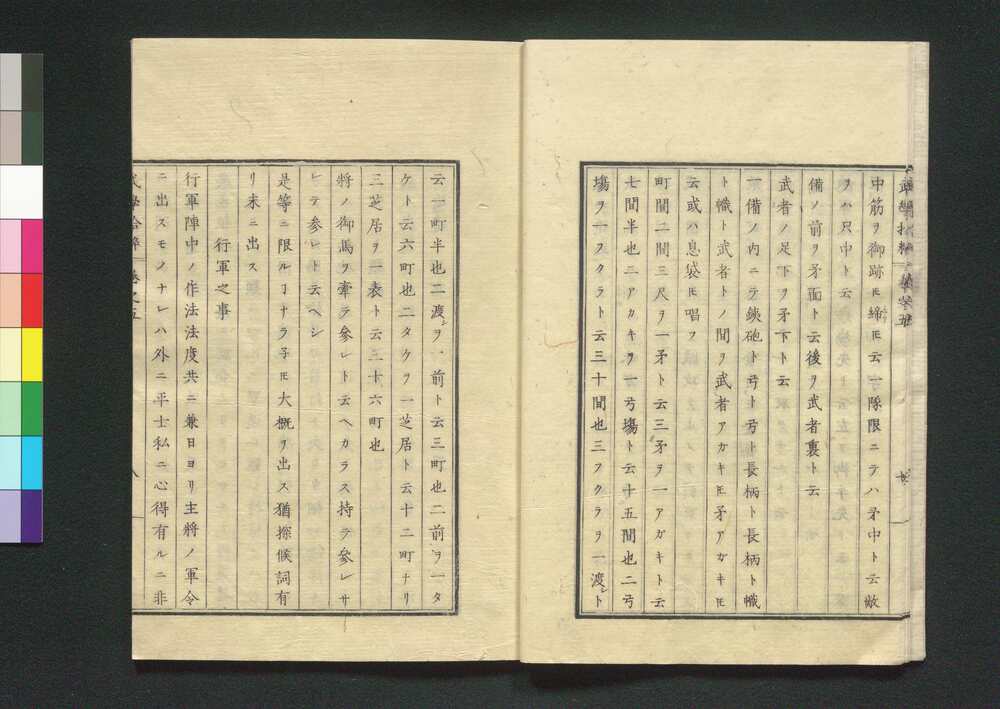 中筋ヲ御跡𪜈締𪜈云一隊限ニテハ矛中ト云敵
ヲハ只中ト云
備ノ前ヲ矛面ト云後ヲ武者裏ト云
武者ノ足下ヲ矛下ト云
一備ノ内ニテ銕砲ト弓ト弓ト長柄ト長柄ト幟
ト幟ト武者トノ間ヲ武者アカキ𪜈矛アガキ𪜈
云或ハ息袋𪜈唱フ
町間二間三尺ヲ一矛ト云三矛ヲ一アガキト云
七間半也二アカキヲ一弓塲ト云十五間也二弓
塲ヲ一フクラト云三十間也三フクラヲ一渡ト
云一町半也二渡ヲ一前ト云三町也二前ヲ一タ
ケト云六町也二タケヲ一芝居ト云十二町ナリ
三芝居ヲ一表ト云三十六町也
將ノ御馬ヲ牽テ參レト云ヘカラス持テ參レサ
シテ参レト云ヘシ
是等ニ限ルヿナラ子𪜈大概ヲ出ス猶探候詞有
リ末ニ出ス
行軍之事
行軍陣中ノ作法法度共ニ兼日ヨリ主將ノ軍令
ニ出スモノナレハ外ニ平士私ニ心得有ルニ非